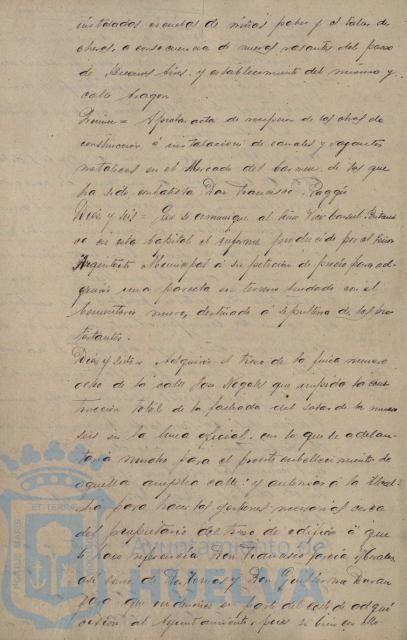 instaladas escuelas de niñas pobres y el taller de
obreras, a consecuencia de nuevas rasantes del paseo
de Buenos Aires y establecimiento del mismo y
calle Aragon
Quince = Aprobar acta de recepcion de las obras de
construcción é instalacion de canales y bajantes
metalicos en el Mercado del Carmen de las que
ha sido contratista Don Francisco
Diez y seis = Que se comunique al Señor Vice Consul Britani
co en esta capital el informe producido por el Señor
Arquitecto Municipal á su peticion de precio para ad-
quirir una parcela en terreno lindado con el
Cementerio nuevo, destinado á sepultura de los pro
testantes.
Diez y siete = Adquirir el trozo de la finca numero
ocho de la calle que impide la cons
trucción total de la fachada del solar de la numero
seis en la linea oficial, con lo que se adelan-
taria mucho para el pronto embellecimiento de
aquella amplia calle; y autorizar á la Alcal-
dia para hacer las gestiones necesarias cerca
del propietario del trozo de edificio á que
se hace referencia Don Francisco Garcia Morales
asi como de Don Tomas y Don Guillermo Duran
para que contribuyan en parte del coste de adqui
sicion al Ayuntamiento, pues si bien en
PORTUS MARIS ET TERRAE CUSTODIA
Ayuntamiento de
HUELVA